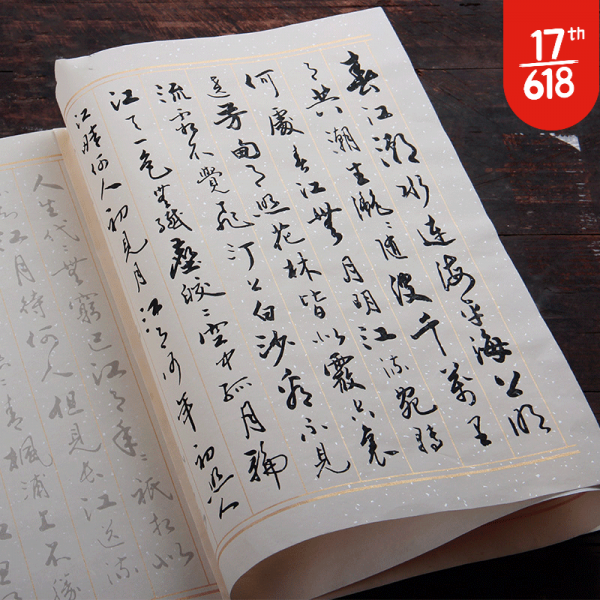 17th
618
春江潮水連海平海上明
月共潮生灩〻隨波千萬里
何處春江無月明江流宛轉
遶芳甸月照花林皆似霰空裏
流霜不覺飛汀上白沙看不見
江天一色無纖塵皎〻空中孤月輪
江畔何人初見月江月何年初照人
人生代〻無窮已江月年〻祇相似
知江月待何人但見長江送流
〻青楓浦上不勝